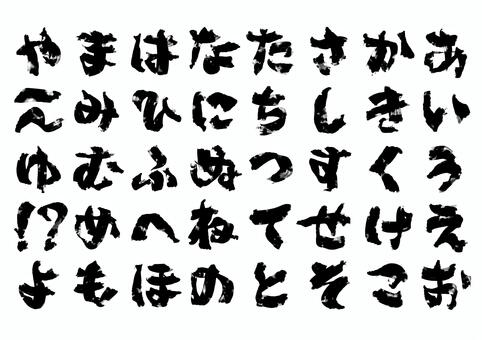 あいうえお
かきくけこ
さしすせそ
たちつてと
なにぬねの
はひふへほ
まみむめも
やゆ!?よ